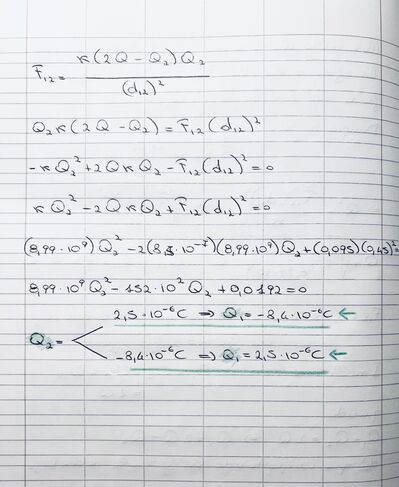 F₁₂ = κ(2Q - Q₂)Q₂ / (d₁₂)²
Q₂κ(2Q - Q₂) = F₁₂(d₁₂)²
-κQ₂² + 2QκQ₂ - F₁₂(d₁₂)² = 0
κQ₂² - 2QκQ₂ + F₁₂(d₁₂)² = 0
(8,99·10⁹)Q₂² - 2(8,5·10⁻⁷)(8,99·10⁹)Q₂ + (0,095)(0,45)² =
8,99·10⁹Q₂² - 152·10²Q₂ + 0,0192 = 0
2,5·10⁻⁶C ⇒ Q₁ = -3,4·10⁻⁶C ←
Q₂ =
-3,4·10⁻⁶C ⇒ Q₁ = 2,5·10⁻⁶C ←